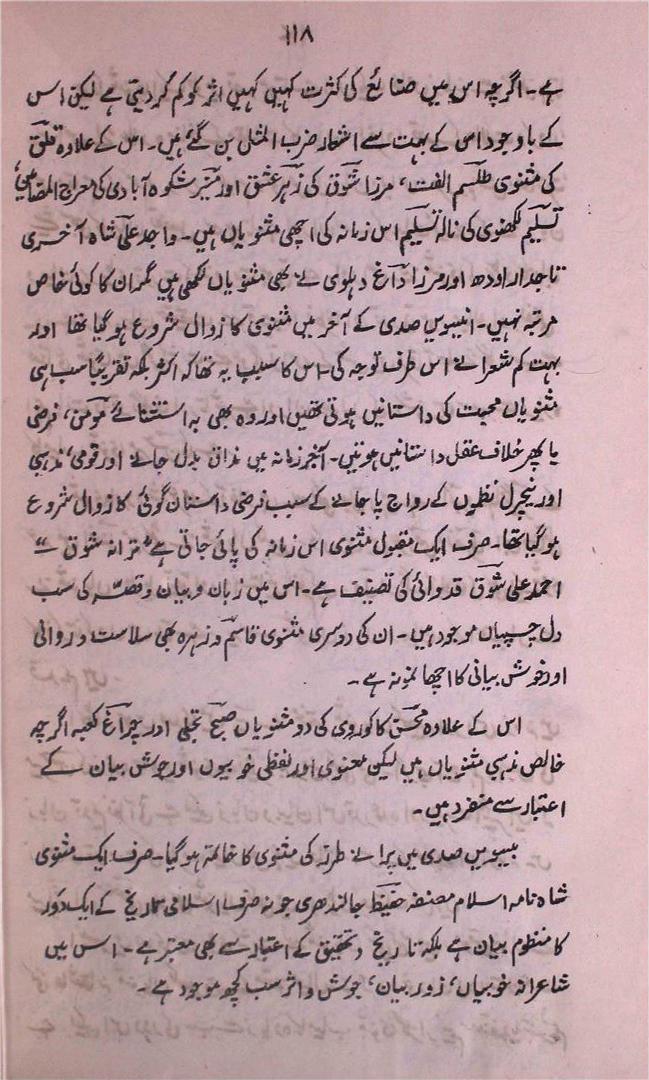 ۱۱۸
ہے۔ اگرچہ اس میں صنائع کی کثرت کہیں کہیں اثر کو کم کر دیتی ہے لیکن اس
کے باوجود اس کے بہت سے اشعار ضرب المثل بن گئے ہیں۔ اس کے علاوہ قلق
کی مثنوی طلسم الفت، مرزا شوق کی زہر عشق اور منیر شکوہ آبادی کی معراج المضامین،
تسلیم لکھنوی کی نالہ تسلیم اس زمانہ کی اچھی مثنویاں ہیں۔ واجد علی شاہ آخری
تاجدار اودھ اور مرزا داغ دہلوی نے بھی مثنویاں لکھی ہیں مگر ان کا کوئی خاص
مرتبہ نہیں۔ انیسویں صدی کے آخر میں مثنوی کا زوال شروع ہو گیا تھا اور
بہت کم شعرا نے اس طرف توجہ کی۔ اس کا سبب یہ تھا کہ اکثر بلکہ تقریباً سب ہی
مثنویاں محبت کی داستانیں ہوتی تھیں اور وہ بھی بہ استثنائے مومن، فرضی
یا پھر خلاف عقل داستانیں ہوتیں۔ آخر زمانہ میں مذاق بدل جانے اور قومی، مذہبی
اور نیچرل نظموں کے رواج پا جانے کے سبب فرضی داستان گوئی کا زوال شروع
ہو گیا تھا۔ صرف ایک مقبول مثنوی اس زمانہ کی پائی جاتی ہے "ترانہ شوق"
احمد علی شوق قدوائی کی تصنیف ہے۔ اس میں زبان و بیان و قصّہ کی سب
دل چسپیاں موجود ہیں۔ ان کی دوسری مثنوی قاسم و زہرہ بھی سلاست و روانی
اور خوش بیانی کا اچھا نمونہ ہے۔
اس کے علاوہ محسن کاکوروی کی دو مثنویاں صبح تجلی اور چراغ کعبہ اگرچہ
خالص مذہبی مثنویاں ہیں لیکن معنوی اور لفظی خوبیوں اور جوش بیان کے
اعتبار سے منفرد ہیں۔
بیسویں صدی میں پرانے طرز کی مثنوی کا خاتمہ ہو گیا۔ صرف ایک مثنوی
شاہ نامہ اسلام مصنفہ حفیظ جالندھری جو نہ صرف اسلامی تاریخ کے ایک دور
کا منظوم بیان ہے بلکہ تاریخ و تحقیق کے اعتبار سے بھی معتبر ہے۔ اس میں
شاعرانہ خوبیاں، زور بیان، جوش و اثر سب کچھ موجود ہے۔